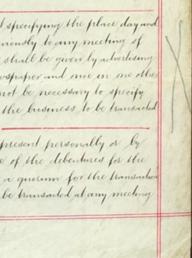 specifying the place day and
viously to any meeting of
shall be given by advertising
wspaper and once in one other
not be necessary to specify
the business to be transacted
present personally or by
e of the debentures for the
a quorum for the transaction
be transacted at any meeting